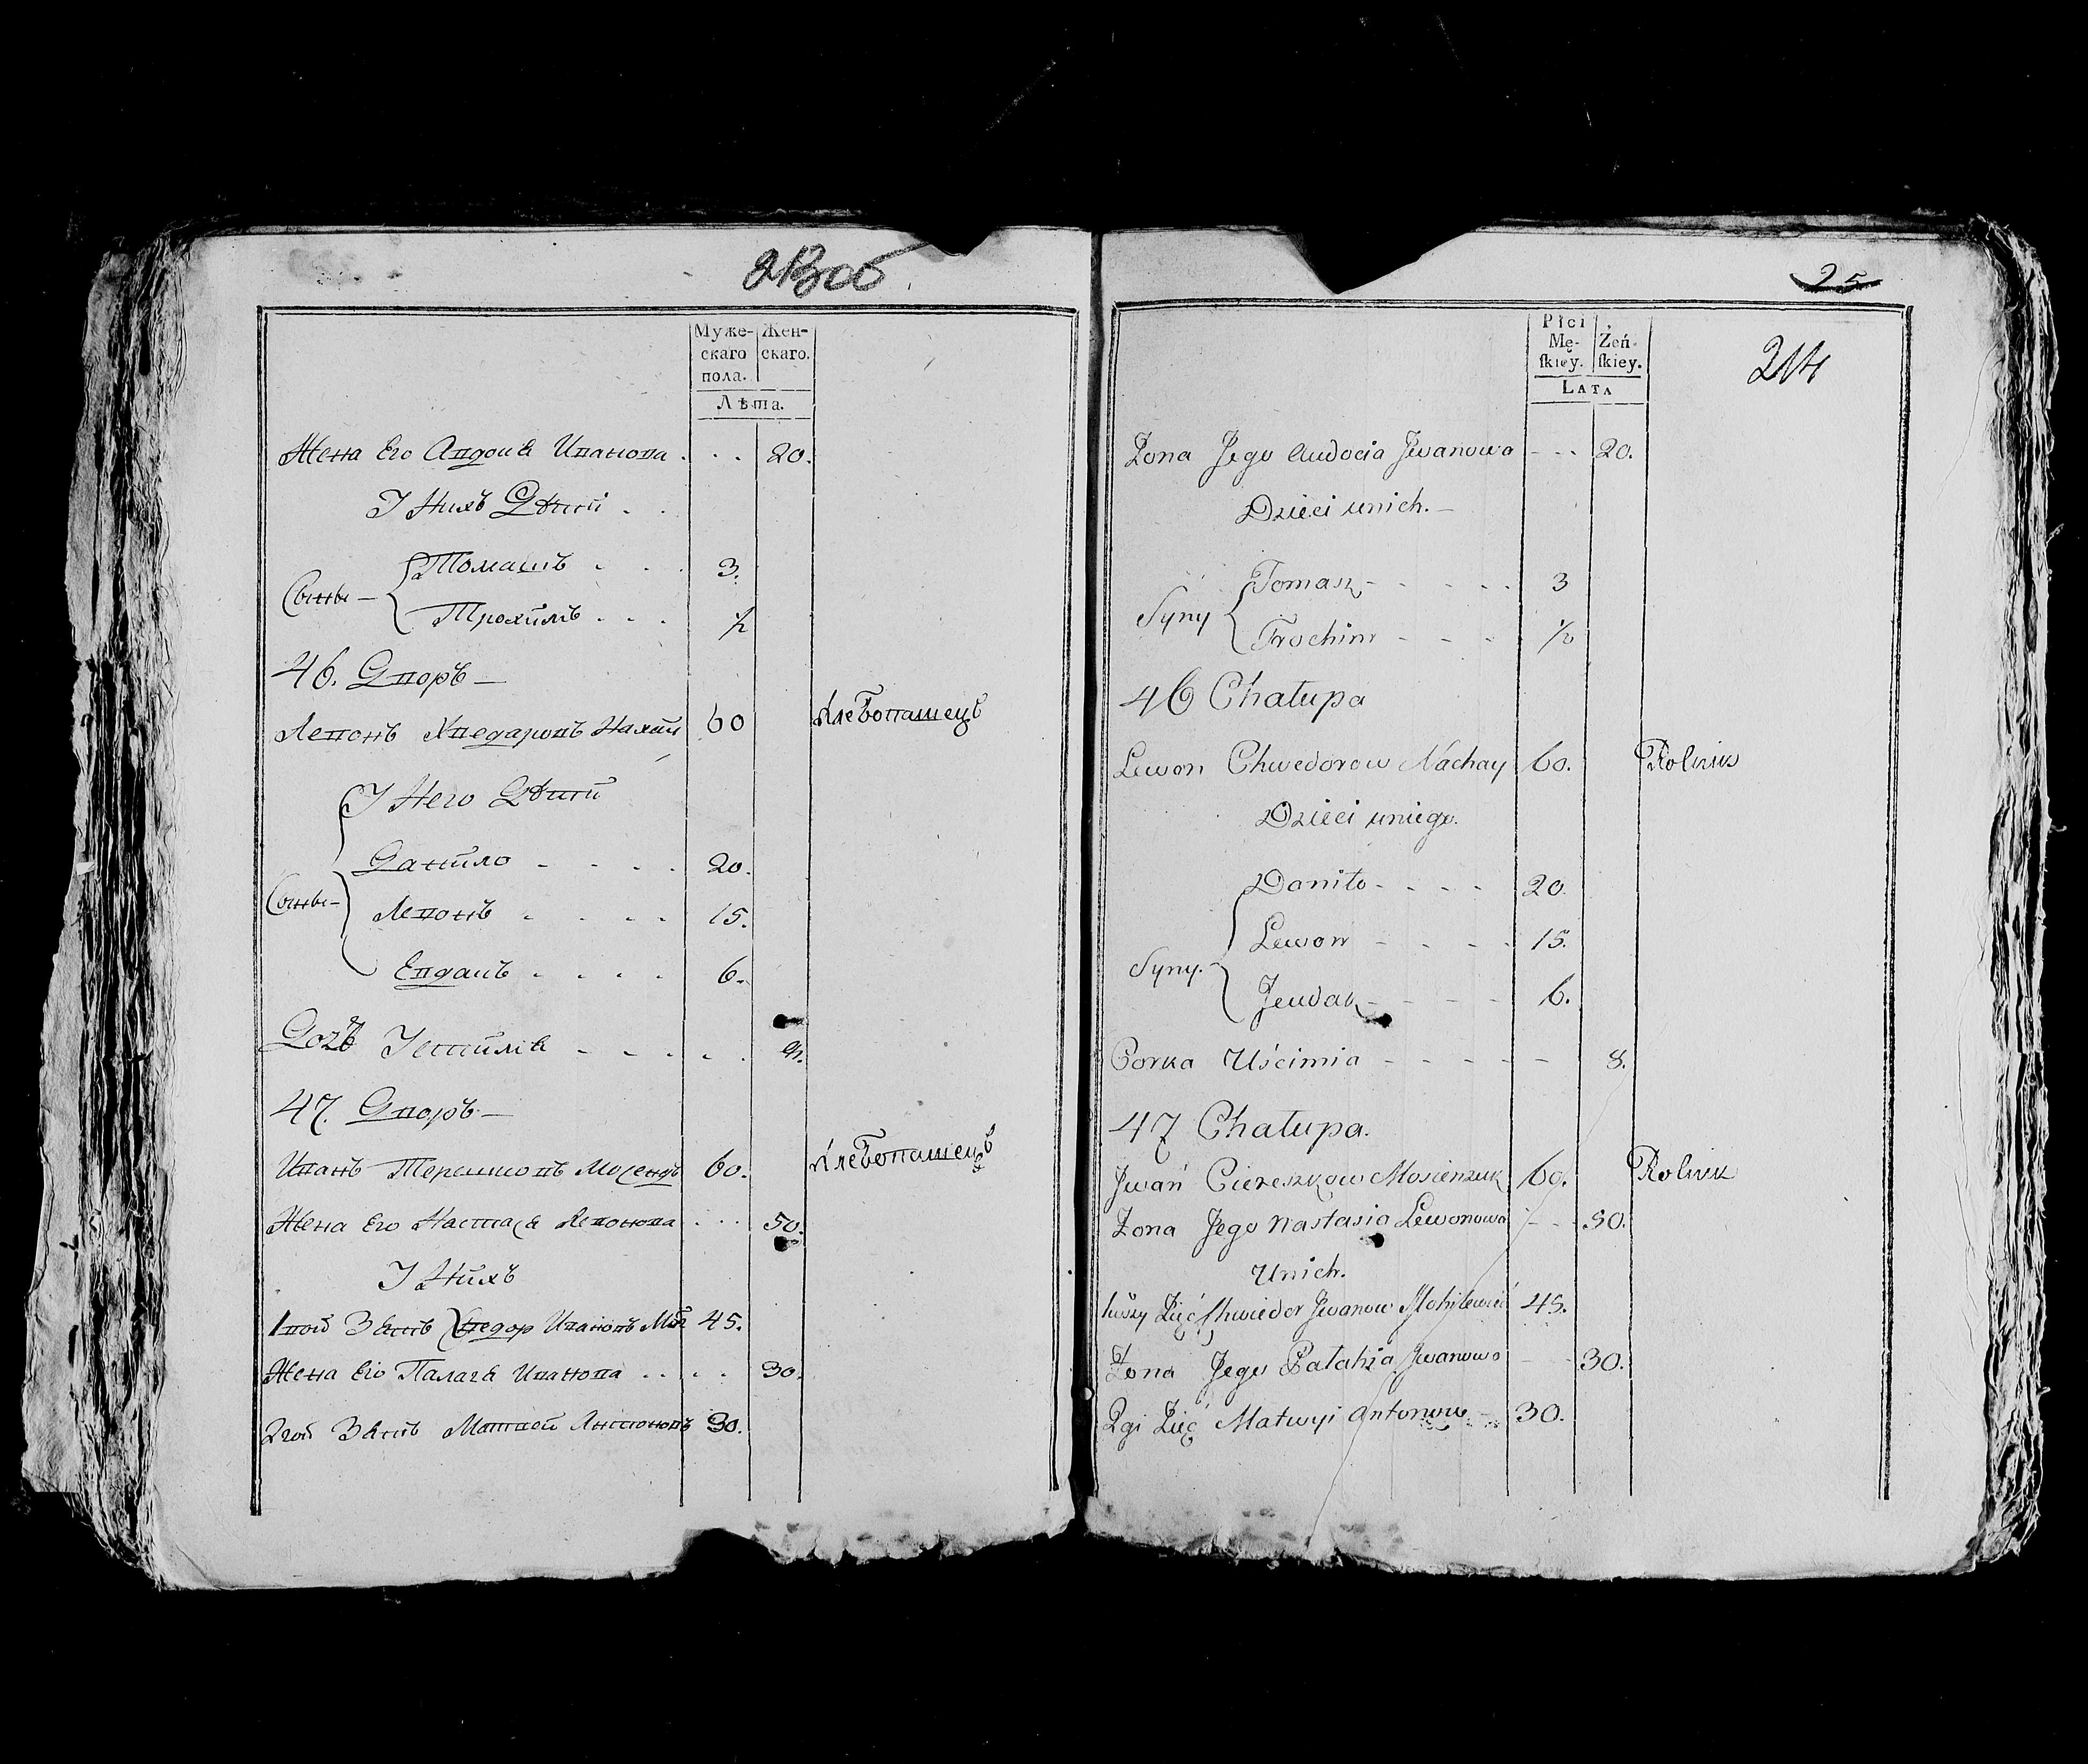 213об
Муже- Жен-
скаго скаго.
пола.
Лѣта.
Жена Его Авдоця Иванова . . . 20.
У Нихъ Дѣти . .
Томашъ . . . 3.
Сыны —
Трохимъ . . . 1/2
46. Дворъ —
Левонъ Хведаровъ Нахай 60 Хлебопашецъ
У Него Дѣти
Данило . . . . 20.
Сыны — Левонъ . . . . 15.
Евдакъ . . . . 6.
Дочъ
47. Дворъ —
Иванъ Терешковъ 60. Хлебопашецъ
Жена Его Настася Левонова . . . 50.
У Нихъ
1вой Зять Хведор Ивановъ 45.
Жена Его Палагя Иванова . . . . 30.
2гой Зять Матвей Антоновъ 30.
25
214
Płci
Mę- Żeń-
skiey. skiey.
Lata
Żona Jego Audocia Jwanowa - - - 20.
Dzieci unich. —
Tomasz - - - - 3
Syny
Trochim - - - 1/2
46 Chałupa
Lewon Chwedorow Nachay 60. Rolnik
Dzieci uniego.
Daniło - - - - 20.
Lewon - - - - 15.
Syny.
Jeudak - - - - 6.
Corka Uścimia - - - - - 8.
47 Chałupa.
Jwań Ciereszkow Mosienzuk 60. Rolnik
Żona Jego Nastasia Lewonowa - - - 50.
Unich.
Zięć Chwiedor Jwanow 45.
Żona Jego Pałahia Jwanowa - - 30.
2gi Zięć Matwyi Antonow - 30.